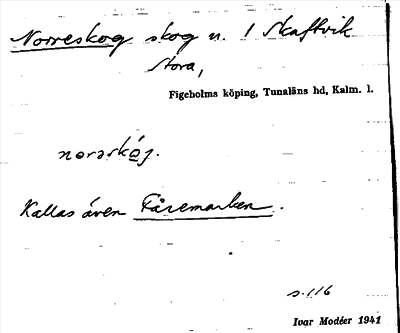 Norreskog skog n. / Skaftvik
Stora,
Figeholms köping, Tunaläns hd, Kalm. l.
norərskóg.
Kallas även Fåremarken.
s. 116
Ivar Modéer 1941